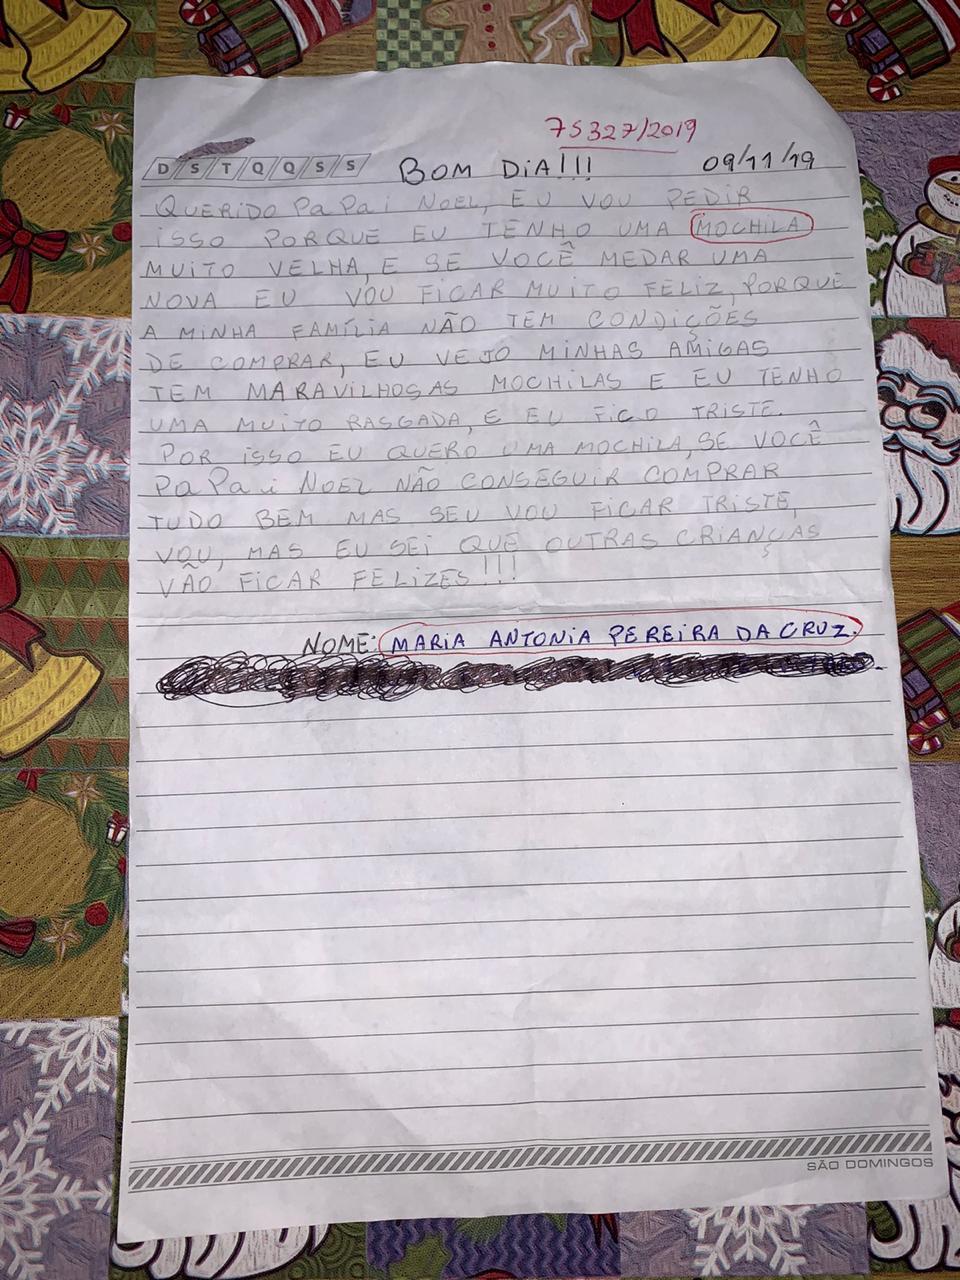 75327/2019
D S T Q Q S S BOM DIA!!! 09/11/19
QUERIDO PAPAI NOEL, EU VOU PEDIR
ISSO PORQUE EU TENHO UMA MOCHILA
MUITO VELHA, E SE VOCÊ MEDAR UMA
NOVA EU VOU FICAR MUITO FELIZ, PORQUE
A MINHA FAMÍLIA NÃO TEM CONDIÇÕES
DE COMPRAR, EU VEJO MINHAS AMIGAS
TEM MARAVILHOSAS MOCHILAS E EU TENHO
UMA MUITO RASGADA, E EU FICO TRISTE.
POR ISSO EU QUERO UMA MOCHILA, SE VOCÊ
PAPAI NOEL NÃO CONSEGUIR COMPRAR
TUDO BEM MAS SEU VOU FICAR TRISTE,
VOU, MAS EU SEI QUE OUTRAS CRIANÇAS
VÃO FICAR FELIZES!!!
NOME: MARIA ANTONIA PEREIRA DA CRUZ.
SÃO DOMINGOS